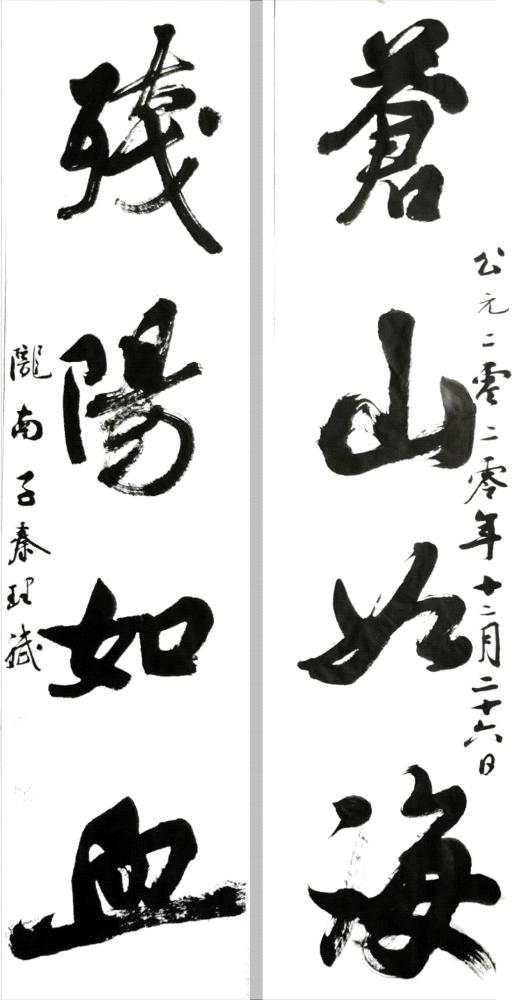 公元二零二零年十二月二十六日
蒼山如海
残陽如血
隴南子秦